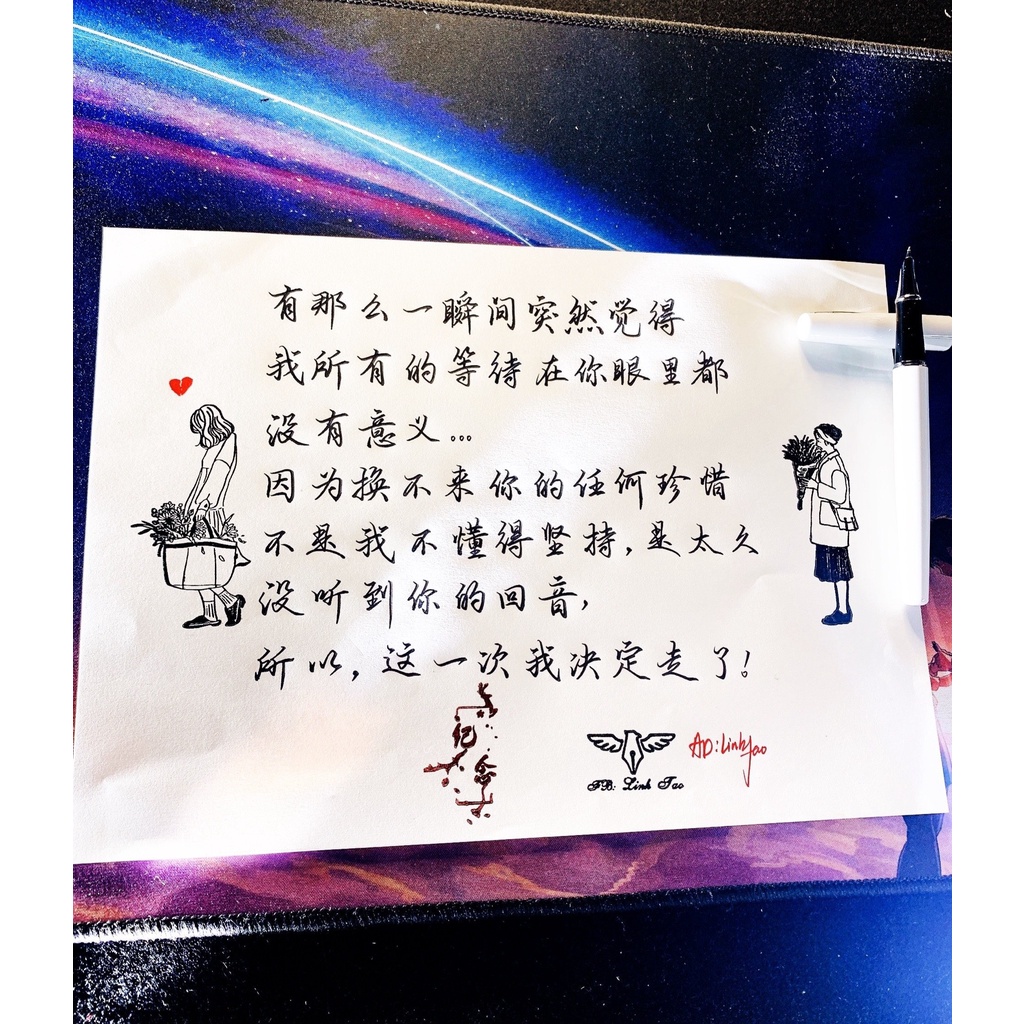 有那么一瞬间突然觉得
我所有的等待在你眼里都
没有意义...
因为换不来你的任何珍惜
不是我不懂得坚持,是太久
没听到你的回音,
所以,这一次我决定走了!
纪念
FB: Link Tao
AD:Linktao